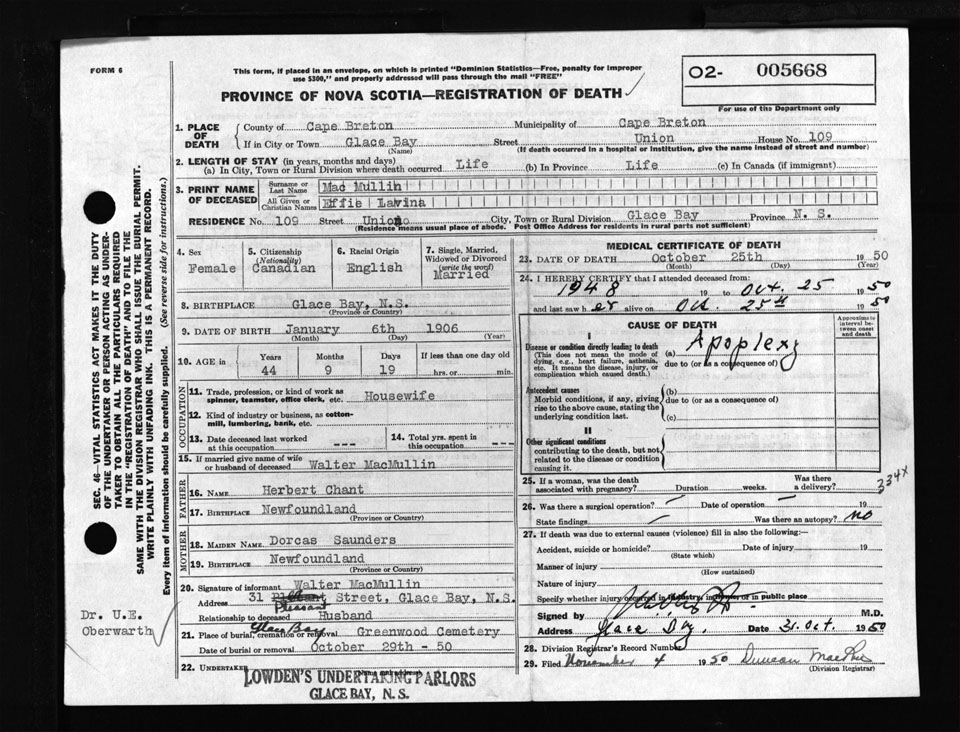 FORM 6
This form, if placed in an envelope, on which is printed "Dominion Statistics—Free, penalty for improper
use $300," and properly addressed will pass through the mail "FREE"
PROVINCE OF NOVA SCOTIA—REGISTRATION OF DEATH
O2- 005668
For use of the Department only
SEC. 46—VITAL STATISTICS ACT MAKES IT THE DUTY
OF THE UNDERTAKER OR PERSON ACTING AS UNDER-
TAKER TO OBTAIN ALL THE PARTICULARS REQUIRED
IN THE "REGISTRATION OF DEATH" AND TO FILE THE
SAME WITH THE DIVISION REGISTRAR WHO SHALL ISSUE THE BURIAL PERMIT.
WRITE PLAINLY WITH UNFADING INK. THIS IS A PERMANENT RECORD.
Every item of information should be carefully supplied. (See reverse side for instructions.)
1. PLACE OF DEATH
County of Cape Breton Municipality of Cape Breton
If in City or Town Glace Bay Street Union House No. 109
(Name) (If death occurred in a hospital or institution, give the name instead of street and number)
2. LENGTH OF STAY (in years, months and days)
(a) In City, Town or Rural Division where death occurred Life (b) In Province Life (c) In Canada (if immigrant)
3. PRINT NAME OF DECEASED
Surname or Last Name Mac Mullin
All Given or Christian Names Effie Lavina
RESIDENCE No. 109 Street Union City, Town or Rural Division Glace Bay Province N. S.
(Residence means usual place of abode. Post Office Address for residents in rural parts not sufficient)
4. Sex Female
5. Citizenship (Nationality) Canadian
6. Racial Origin English
7. Single, Married, Widowed or Divorced (write the word) Married
8. BIRTHPLACE Glace Bay, N.S.
(Province or Country)
9. DATE OF BIRTH January 6th 1906
(Month) (Day) (Year)
10. AGE in Years Months Days If less than one day old
44 9 19 hrs. or min.
OCCUPATION
11. Trade, profession, or kind of work as
spinner, teamster, office clerk, etc. Housewife
12. Kind of industry or business, as cotton-
mill, lumbering, bank, etc.
13. Date deceased last worked
at this occupation ---
14. Total yrs. spent in
this occupation ---
15. If married give name of wife
or husband of deceased Walter MacMullin
FATHER
16. NAME Herbert Chant
17. BIRTHPLACE Newfoundland
(Province or Country)
MOTHER
18. MAIDEN NAME Dorcas Saunders
19. BIRTHPLACE Newfoundland
(Province or Country)
20. Signature of informant Walter MacMullin
Address 31 Street, Glace Bay, N.S.
Pleasant
Relationship to deceased Husband
Glace Bay
21. Place of burial, cremation or removal Greenwood Cemetery
Date of burial or removal October 29th - 50
22. UNDERTAKER
LOWDEN'S UNDERTAKING PARLORS
GLACE BAY, N. S.
Dr. U.E.
Oberwarth
MEDICAL CERTIFICATE OF DEATH
23. DATE OF DEATH October 25th 1950
(Month) (Day) (Year)
24. I HEREBY CERTIFY that I attended deceased from:
1948 19 to Oct. 25 1950
and last saw h er alive on Oct. 25th 1950
CAUSE OF DEATH
Approximate interval between onset and death
I
Disease or condition directly leading to death
(This does not mean the mode of
dying, e.g., heart failure, asthenia,
etc. It means the disease, injury, or
complication which caused death.)
(a) Apoplexy
due to (or as a consequence of)
Antecedent causes
Morbid conditions, if any, giving
rise to the above cause, stating the
underlying condition last.
(b)
due to (or as a consequence of)
(c)
II
Other significant conditions
contributing to the death, but not
related to the disease or condition
causing it.
334x
25. If a woman, was the death
associated with pregnancy? Duration weeks. Was there
a delivery?
26. Was there a surgical operation? Date of operation 19
State findings Was there an autopsy? no
27. If death was due to external causes (violence) fill in also the following:
Accident, suicide or homicide? Date of injury 19
(State which)
Manner of injury
(How sustained)
Nature of injury
Specify whether injury occurred in industry, in home or in public place
Signed by M.D.
Address Glace Bay. Date 31. Oct. 1950
28. Division Registrar's Record Number
29. Filed November 4 1950 Duncan
(Division Registrar)